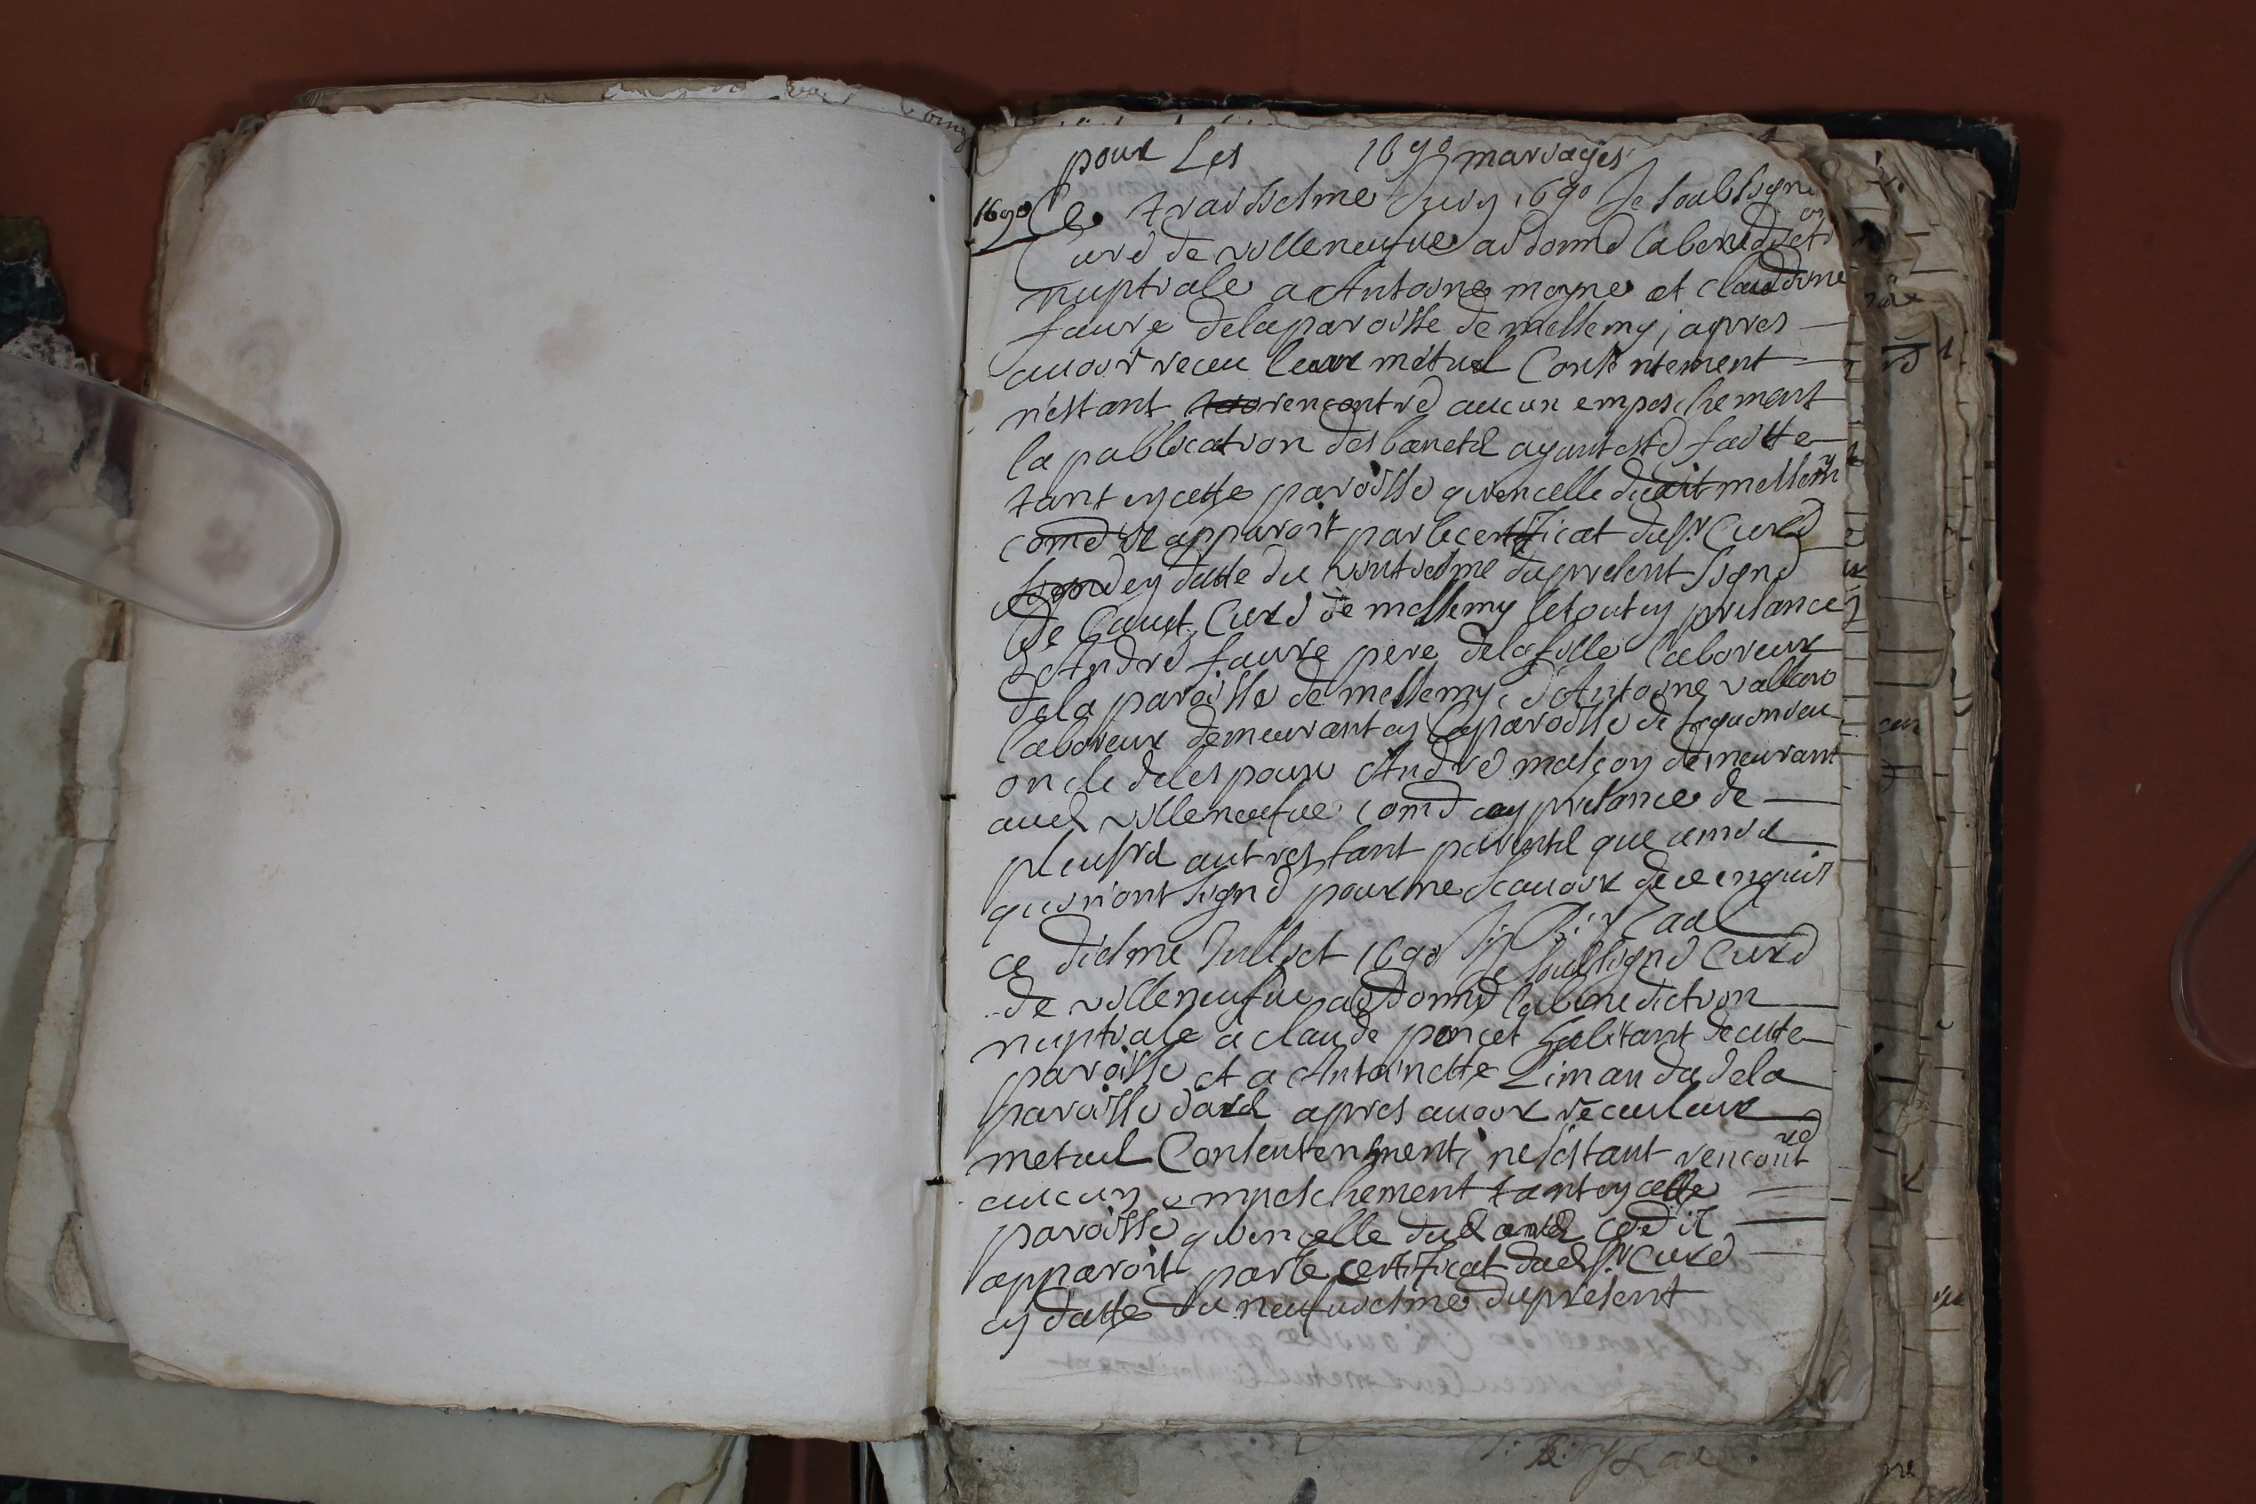 pour Les 1690 mariages
1690 Ce troisiesme Juin 1690 Je soubsigne
Curé de villeneufue ai donné la benediction
nuptiale a Antoine moyne et claudine
faure de la paroisse de messemy, apres
auoir receu leur metuel Consentement
n'estant rencontré aucun empeschement
la pubblication des banets ayant esté faitte
tant en cette paroisse qu'en celle dudit messemy
comé il apparoit par le certificat du sr Curé
en datte du du present signé
de Curé de messemy le tout en presance
d'André faure pere de la fille laboreur
de la paroisse de messemy, d'Antoine
laboreur demeurant en la paroisse de
oncle de lespoux André masçon demeurant
aud villeneufue comé en presance de
pleusrs autres tant parents que amis
qui n'ont signé pour ne scauoir de ce enquis
ce diesme Jullict 1690 Je soubsigné Curé
de villeneufue ai donné la benediction
nuptiale a claude poncet habitant de cette
paroisse et a Antoinette Limanda de la
paroisse dars apres auoir receu leur
metuel Consentement, ne s'estant rencontré
aucun empeschement tant en cette
paroisse qu'en celle dud ards coé il
apparoit par le certificat dud sr Curé
en datte du neufuiesme du present